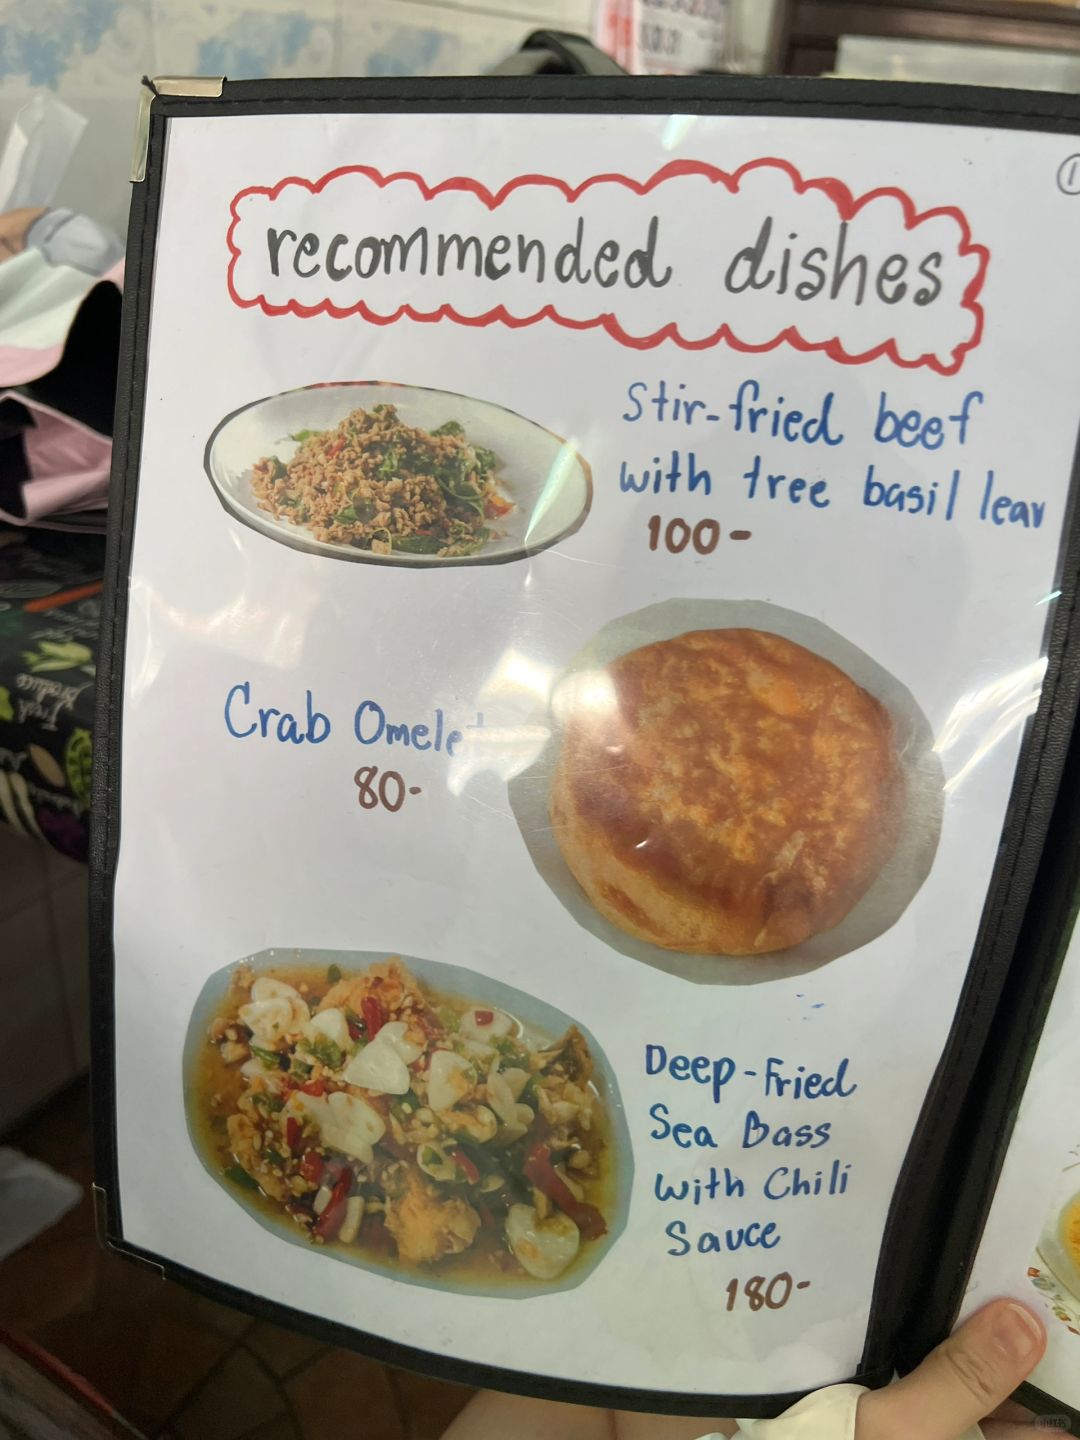 1
recommended dishes
Stir-fried beef
with tree basil leav
100-
Crab Omelet
80-
Deep-Fried
Sea Bass
with Chili
Sauce
180-
Fresh
Produce